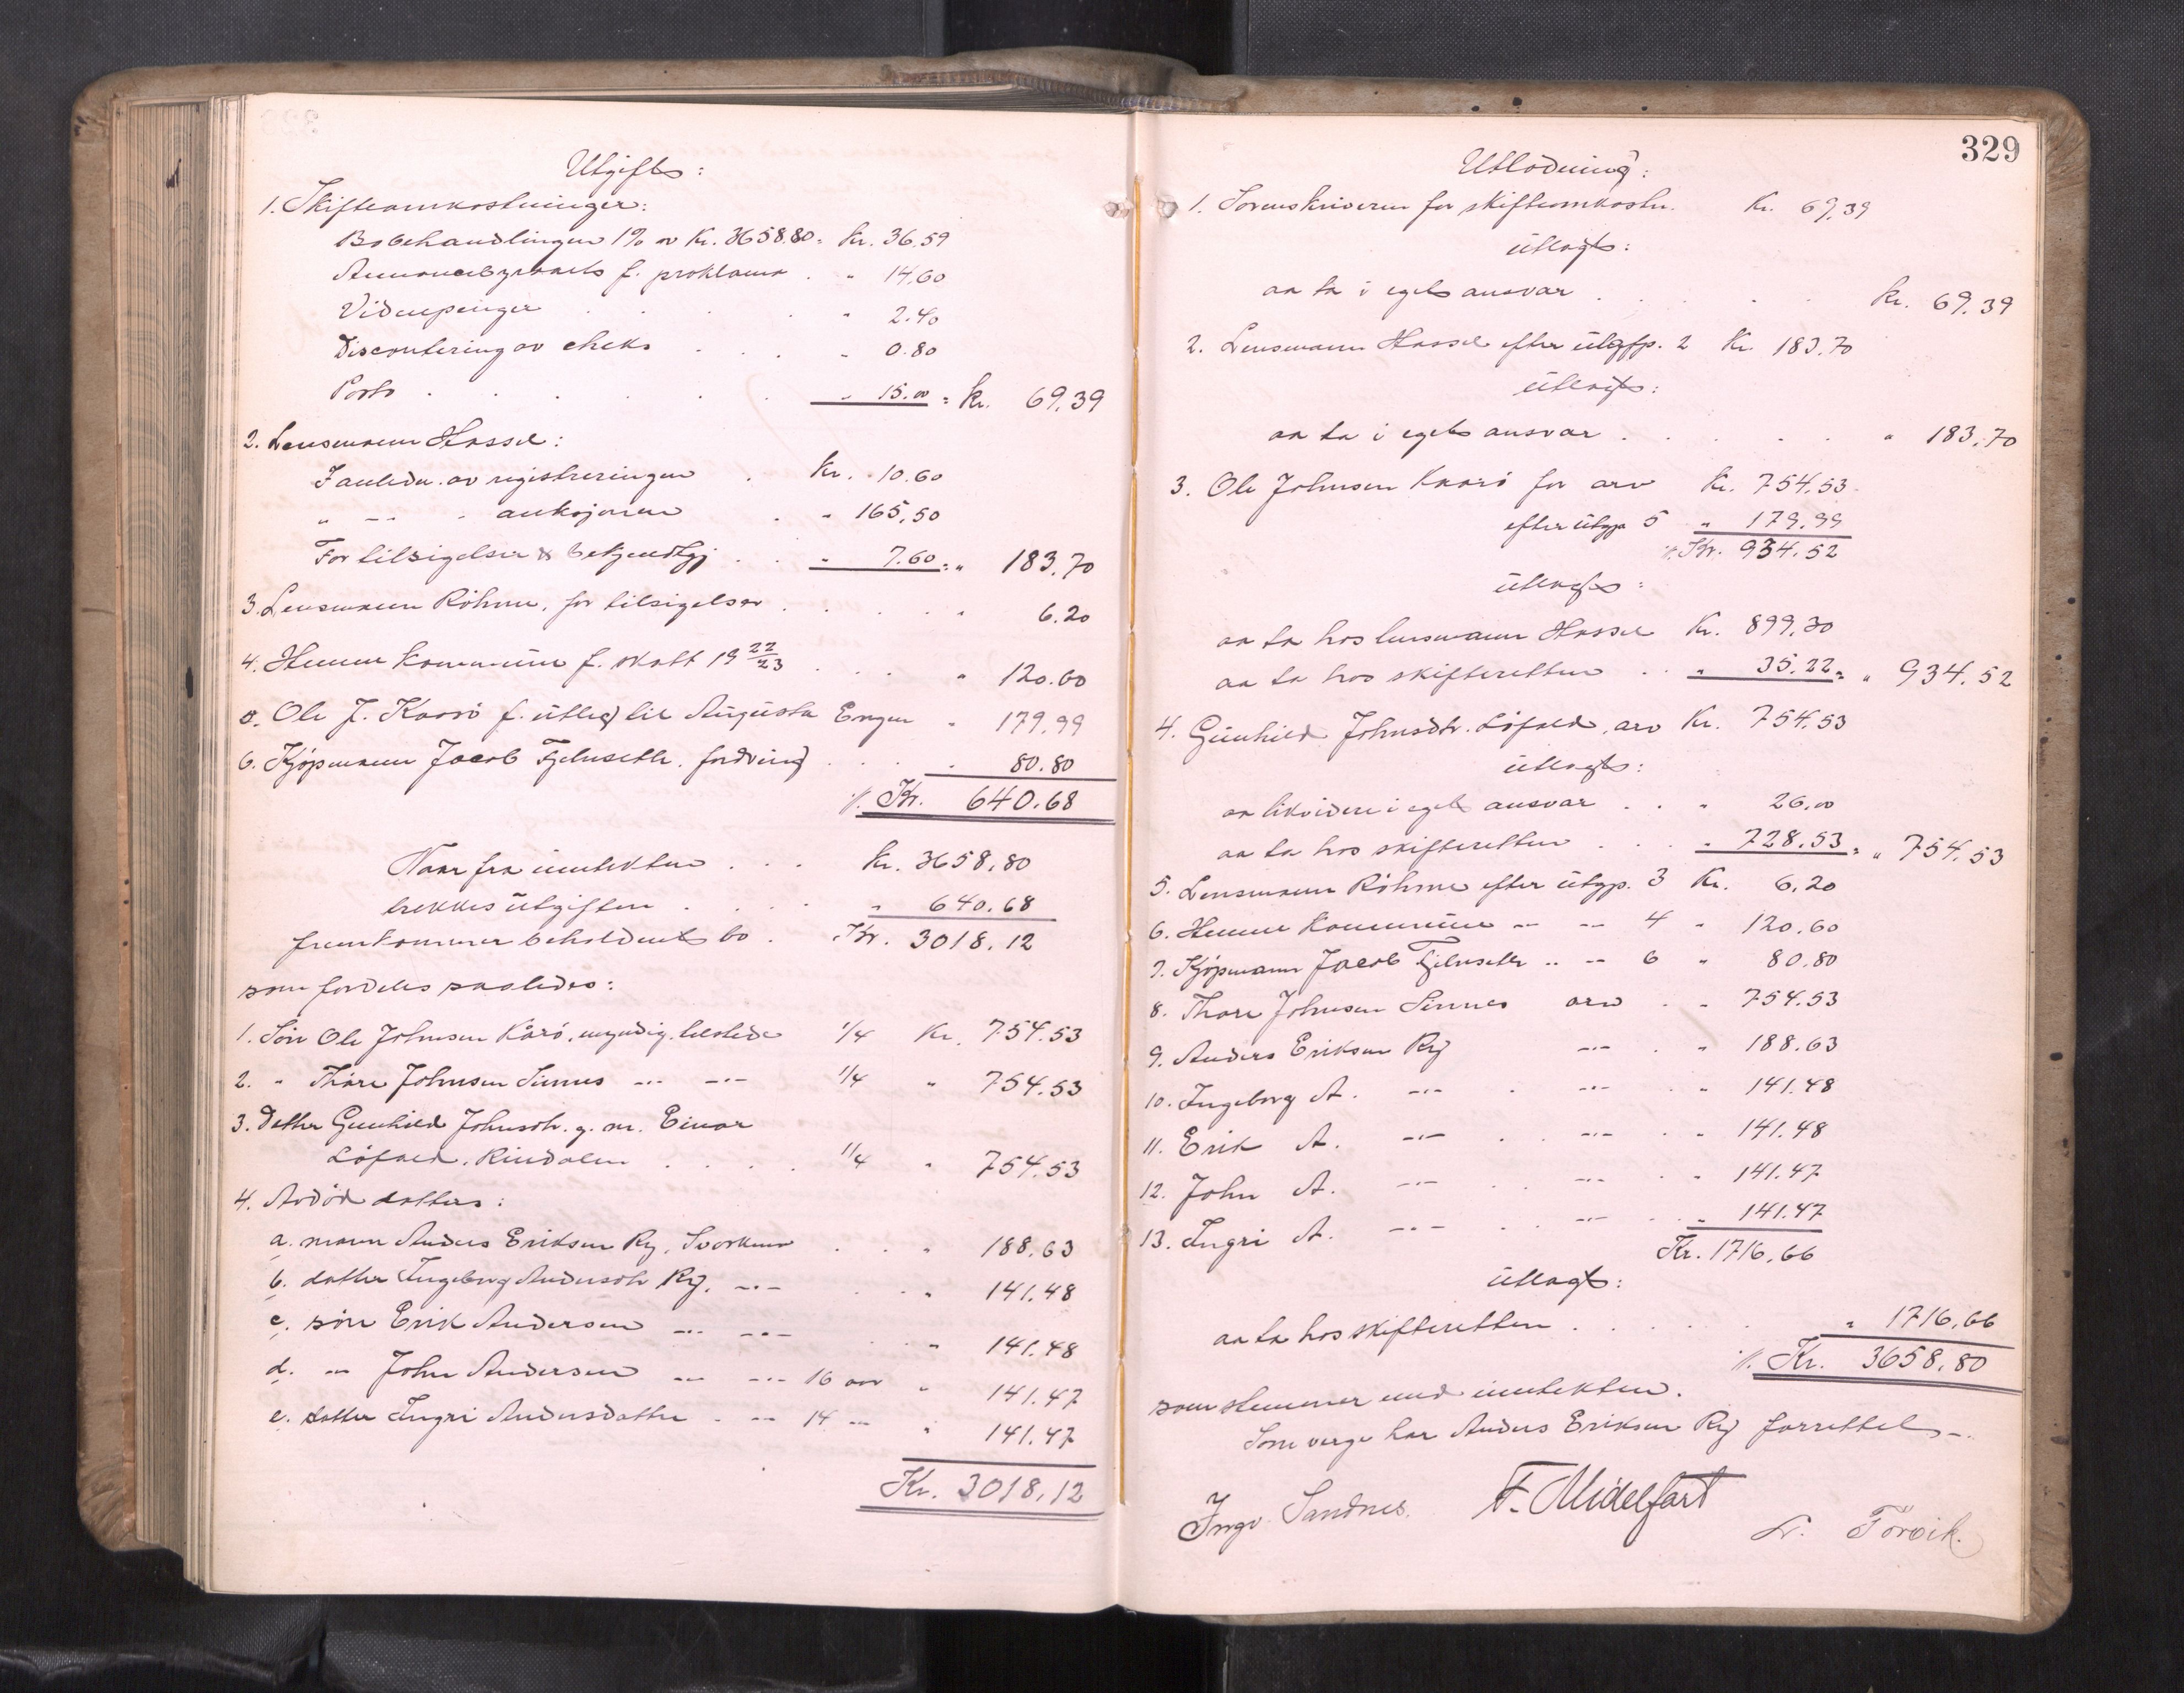 Utgift:
1. Skifteomkostninger:
Bobehandlingen 1% av Kr. 3658.80 = Kr. 36.59
Annoncebyraaets f. proklama . " 14,60
Vidnepenger . . . " 2.40
Discontering av cheks . . . " 0.80
Porto . . . . . " 15.00 = Kr. 69,39
2. Lensmann Hassel:
I anledn. av registreringen . Kr. 10.60
" -- . auksjonen . " 165,50
For tilsigelser & bekjendtgj . . " 7.60 = " 183,70
3. Lensmann Röhme, for tilsigelser . . . . " 6.20
4. Hemne kommune f. skatt 19 22/23 . . . " 120.60
5. Ole J. Kaarö f. utlæg til Augusta Engen " 179,99
6. Kjöpmann Jacob Fjelnseth. fordring . . " 80.80
./. Kr. 640.68
Naar fra inntekten . . . Kr. 3658,80
trekkes utgiften . . . . " 640.68
fremkommer beholdent bo . Kr. 3018.12
som fordeles saaledes:
1. Sön Ole Johnsen Kårö, myndig, tilstede 1/4 Kr. 754.53
2. " Thore Johnsen Sinnes -"- -"- 1/4 " 754.53
3. Datter Gunhild Johnsdtr. g. m. Einar
Löfald, Rindalen . . . . 1/4 " 754.53
4. Avdöd datters:
a. mann Anders Eriksen Ry, Svorkmo . . " 188,63
b. datter Ingeborg Andersdtr Ry, -"- . . " 141.48
c. sön Erik Andersen -"- -"- . . " 141.48
d. -"- John Andersen -"- -"- 16 aar " 141.47
e. datter Ingri Andersdatter - -"- 14 -"- " 141.47
Kr. 3018,12
329
Utlodning:
1. Sorenskriveren for skifteomkostn. Kr. 69,39
utlagt:
aa ta i eget ansvar . . . . Kr. 69.39
2. Lensmann Hassel efter utgfp. 2 Kr 183.70
utlagt:
aa ta i eget ansvar . . . . . " 183,70
3. Ole Johnsen Kaarö for arv Kr. 754,53
efter utgp 5 " 179.99
./. Kr. 934.52
utlagt:
aa ta hos lensmann Hassel Kr. 899,30
aa ta hos skifteretten . . " 35.22 = " 934.52
4. Gunhild Johnsdtr. Löfald, arv Kr. 754.53
utlagt:
aa likvidere i eget ansvar . . " 26.00
aa ta hos skifteretten . . . " 728.53 = " 754.53
5. Lensmann Röhme efter utgp. 3 Kr. 6,20
6. Hemne Kommune -"- -"- 4 " 120.60
7. Kjöpmann Jacob Fjelnseth -"- -"- 6 " 80.80
8. Thore Johnsen Sinnes arv . " 754.53
9. Anders Eriksen Ry -"- . " 188.63
10. Ingeborg A. -"- . -"- . " 141.48
11. Erik A. -"- . . -"- . " 141.48
12. John A. -"- . . -"- . " 141.47
13. Ingri A. -"- . . -"- . " 141.47
Kr. 1716,66
utlagt:
aa ta hos skifteretten . . . . . " 1716,66
./. Kr. 3658,80
som stemmer med inntekten.
Som verge har Anders Eriksen Ry forrettet.-
Ingv. Sandnes. F. Midelfart
L. Torvik.